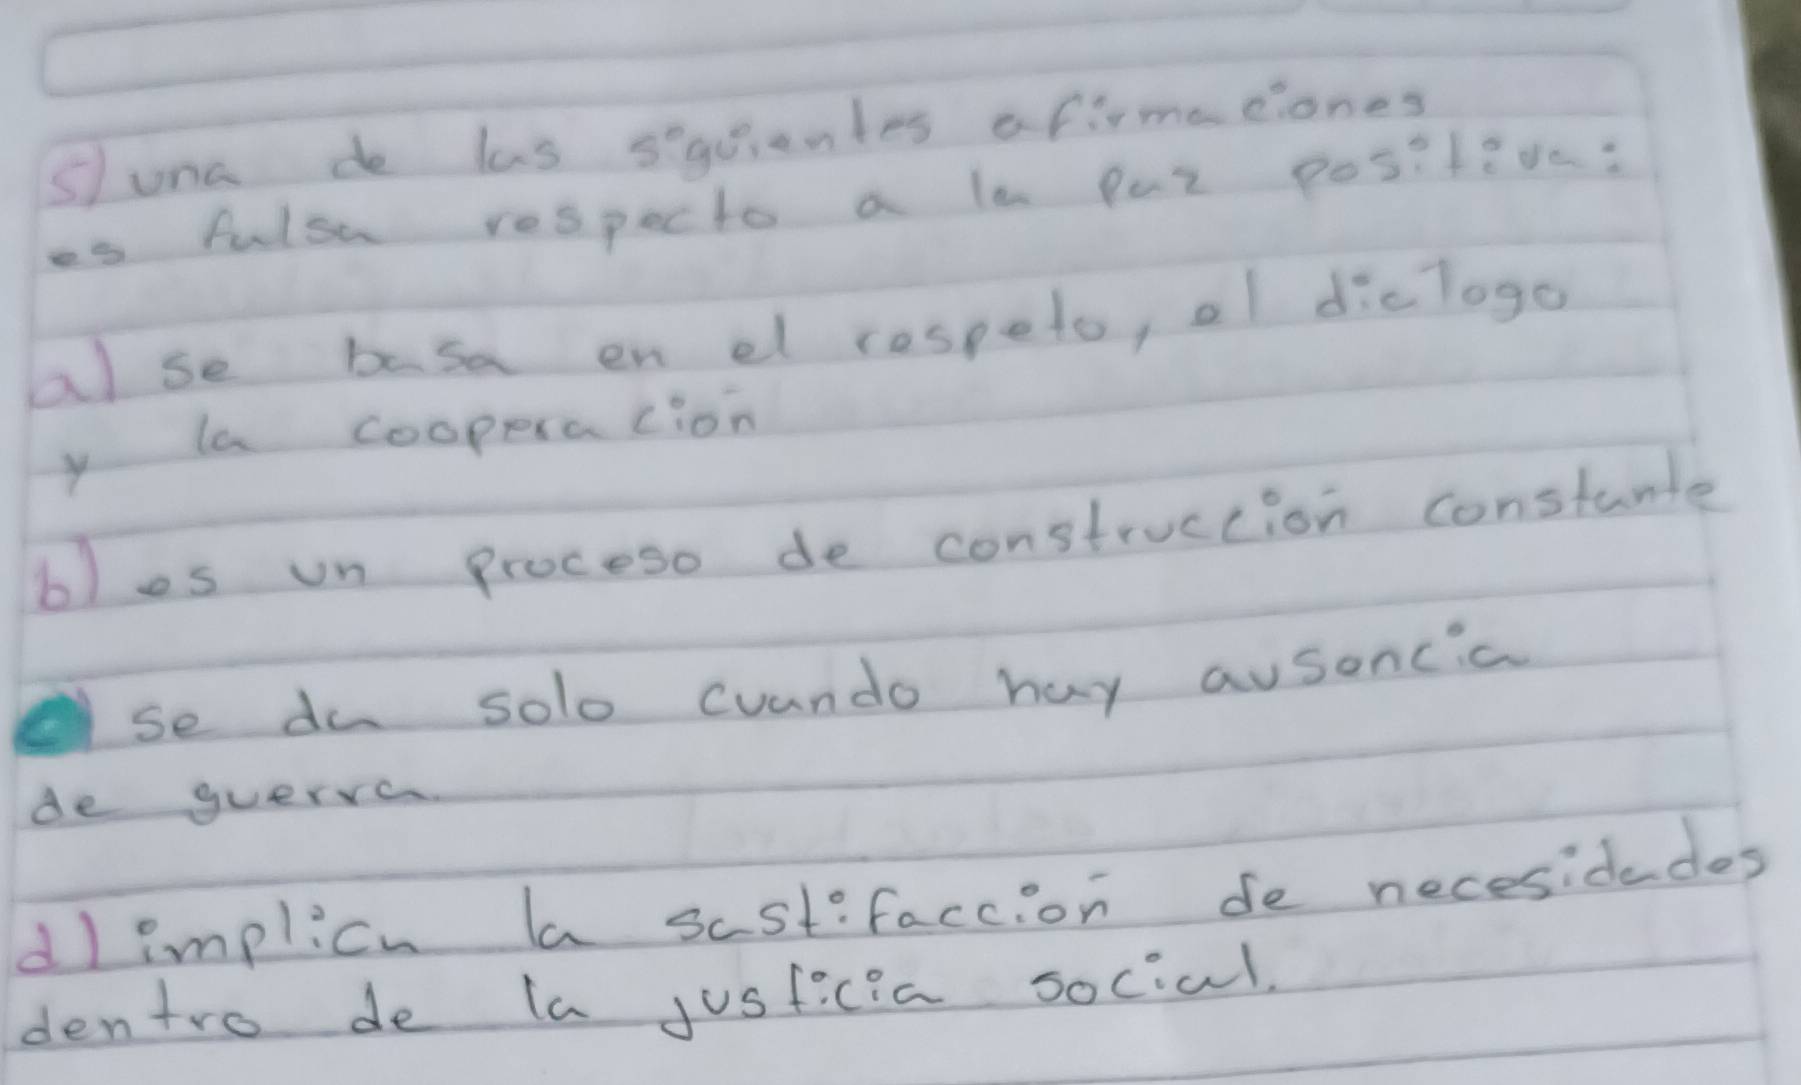 5) una de las siguientes afirmaciones
es falsa respecto a la paz positiva:
a) se basa en el respeto, el dialogo
y la cooperación
b) es un proceso de construcción constante
c) se da solo cuando hay ausencia
de guerra.
d) implica la sastifacción de necesidades
dentro de la justicia social.